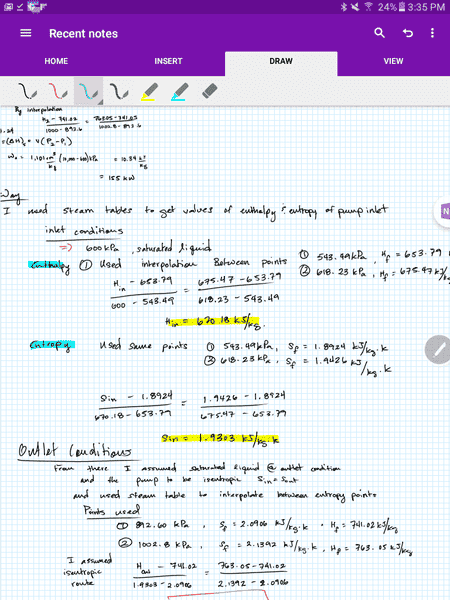 24% 3:35 PM
Recent notes
HOME INSERT DRAW VIEW
By interpolation
H₂ - 741.02 / 1000 - 892.6 = 763.05 - 741.02 / 1002.8 - 892.6
= V(P₂-P₁)
= 155 kW
Way
I used steam tables to get values of enthalpy & entropy of pump inlet
inlet conditions
=> 600 kPa, saturated liquid
Enthalpy ① Used interpolation Between points ① 543.49 kPa, Hf = 653.79
② 618.23 kPa, Hf = 675.47 kJ/kg
Hin - 653.79 / 600 - 543.49 = 675.47 - 653.79 / 618.23 - 543.49
Hin = 670.18 kJ/kg.
Entropy Used same points ① 543.49 kPa, Sf = 1.8924 kJ/kg.K
② 618.23 kPa, Sf = 1.9426 kJ/kg.K
Sin - 1.8924 / 670.18 - 653.79 = 1.9426 - 1.8924 / 675.47 - 653.79
Sin = 1.9303 kJ/kg.K
Outlet Conditions
From there I assumed saturated liquid @ outlet condition
and the pump to be isentropic Sin = Sout
and used steam table to interpolate between entropy points
Points used
① 892.60 kPa, Sf = 2.0906 kJ/kg.K, Hf = 741.02 kJ/kg
② 1002.8 kPa, Sf = 2.1392 kJ/kg.K, Hf = 763.05 kJ/kg
I assumed
isentropic
route
Hout - 741.02 / 1.9303 - 2.0906 = 763.05 - 741.02 / 2.1392 - 2.0906